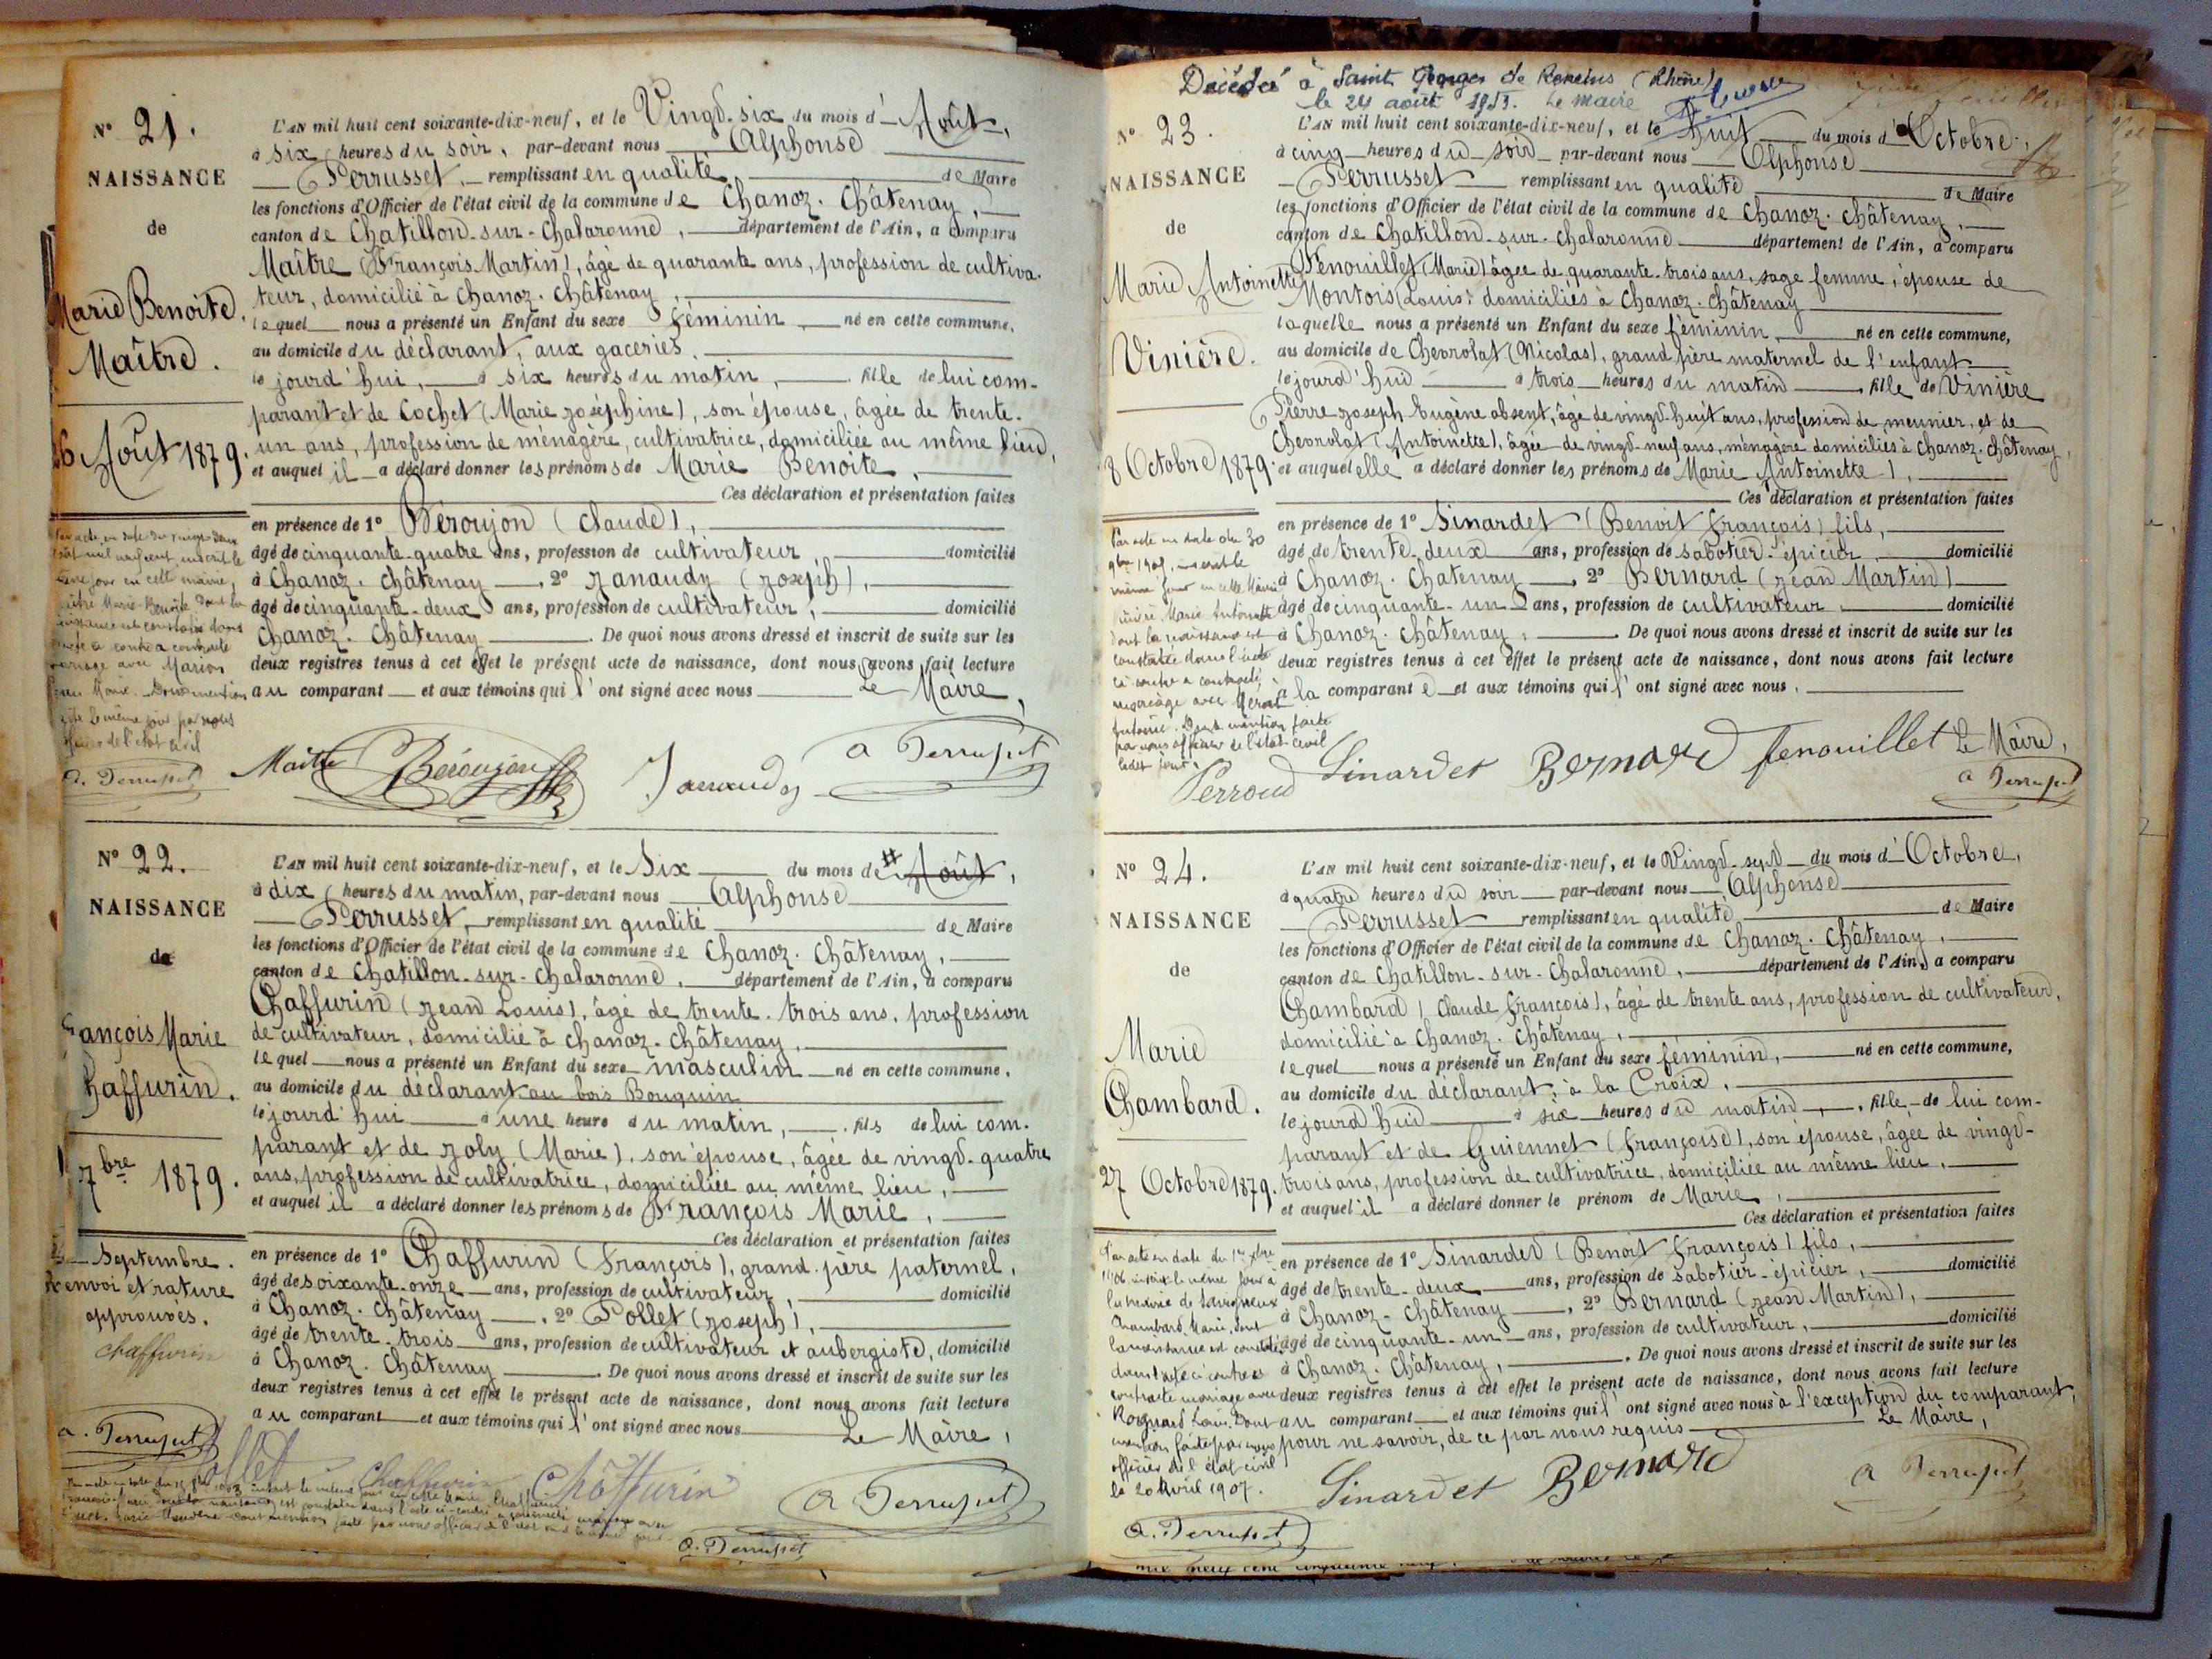 N° 21.
NAISSANCE
de
Marie Benoite
Maître.
26 Août 1879.
L'AN mil huit cent soixante-dix-neuf, et le Vingt-six du mois d'Août,
à six heures du soir, par-devant nous Alphonse
Perrusset, remplissant en qualité de Maire
les fonctions d'Officier de l'état civil de la commune de Chanoz-Châtenay,
canton de Chatillon-sur-Chalaronne, département de l'Ain, a comparu
Maître (François Martin), âgé de quarante ans, profession de cultiva-
teur, domicilié à Chanoz-Châtenay,
lequel nous a présenté un Enfant du sexe féminin, né en cette commune,
au domicile du déclarant, aux gaceries,
le jourd'hui, à six heures du matin, fille de lui com-
parant et de Cochet (Marie Joséphine), son épouse, âgée de trente-
un ans, profession de ménagère, cultivatrice, domiciliée au même lieu,
et auquel il a déclaré donner les prénoms de Marie Benoite,
Ces déclaration et présentation faites
en présence de 1° Béroujon (Claude),
âgé de cinquante-quatre ans, profession de cultivateur domicilié
à Chanoz-Châtenay, 2° Janaudy (Joseph),
âgé de cinquante-deux ans, profession de cultivateur, domicilié
Chanoz-Châtenay. De quoi nous avons dressé et inscrit de suite sur les
deux registres tenus à cet effet le présent acte de naissance, dont nous avons fait lecture
au comparant et aux témoins qui l'ont signé avec nous Le Maire,
Maître Marie Benoite dont la
naissance est constatée dans
l'acte ci-contre a contracté
mariage avec Marion
Dont mention
faite le même jour par nous
officier de l'état civil
A. Perrusset
Maître Béroujon Janaudy A Perrusset
N° 22.
NAISSANCE
de
François Marie
Chaffurin.
7bre 1879.
L'AN mil huit cent soixante-dix-neuf, et le Six du mois de # Août,
à dix heures du matin, par-devant nous Alphonse
Perrusset, remplissant en qualité de Maire
les fonctions d'Officier de l'état civil de la commune de Chanoz-Châtenay,
canton de Chatillon-sur-Chalaronne, département de l'Ain, a comparu
Chaffurin (Jean Louis), âgé de trente-trois ans, profession
de cultivateur, domicilié à Chanoz-Châtenay,
lequel nous a présenté un Enfant du sexe masculin né en cette commune,
au domicile du déclarant au bois Bouquin
le jourd'hui à une heure du matin, fils de lui com-
parant et de Joly (Marie), son épouse, âgée de vingt-quatre
ans, profession de cultivatrice, domiciliée au même lieu,
et auquel il a déclaré donner les prénoms de François Marie,
Ces déclaration et présentation faites
en présence de 1° Chaffurin (François), grand-père paternel,
âgé de soixante-onze ans, profession de cultivateur, domicilié
à Chanoz-Châtenay, 2° Pollet (Joseph),
âgé de trente-trois ans, profession de cultivateur et aubergiste, domicilié
à Chanoz-Châtenay. De quoi nous avons dressé et inscrit de suite sur les
deux registres tenus à cet effet le présent acte de naissance, dont nous avons fait lecture
au comparant et aux témoins qui l'ont signé avec nous Le Maire,
# Septembre.
Renvoi et rature
approuvés.
Chaffurin
A. Perrusset
Pollet Chaffurin Chaffurin A Perrusset
A. Perrusset
Décédée à Saint Georges de Reneins (Rhône)
le 24 août 1953. Le Maire
N° 23.
NAISSANCE
de
Marie Antoinette
Vinière.
8 Octobre 1879.
L'AN mil huit cent soixante-dix-neuf, et le huit du mois d'Octobre,
à cinq heures du soir par-devant nous Alphonse
Perrusset remplissant en qualité de Maire
les fonctions d'Officier de l'état civil de la commune de Chanoz-Châtenay,
canton de Chatillon-sur-Chalaronne département de l'Ain, a comparu
Fenouillet (Marie) âgée de quarante-trois ans, sage femme, épouse de
Montois (Louis) domiciliés à Chanoz-Châtenay
laquelle nous a présenté un Enfant du sexe féminin, né en cette commune,
au domicile de Chevrolat (Nicolas), grand père maternel de l'enfant
le jourd'hui à trois heures du matin, fille de Vinière
Pierre Joseph Eugène absent, âgé de vingt-huit ans, profession de meunier, et de
Chevrolat (Antoinette), âgée de vingt-neuf ans, ménagère domiciliés à Chanoz-Châtenay,
et auquel elle a déclaré donner les prénoms de Marie Antoinette),
Ces déclaration et présentation faites
en présence de 1° Sinardet (Benoit François) fils,
âgé de trente-deux ans, profession de sabotier-épicier, domicilié
à Chanoz-Chatenay, 2° Bernard (Jean Martin)
âgé de cinquante-un ans, profession de cultivateur domicilié
à Chanoz-Châtenay, De quoi nous avons dressé et inscrit de suite sur les
deux registres tenus à cet effet le présent acte de naissance, dont nous avons fait lecture
à la comparante et aux témoins qui l'ont signé avec nous.
Par acte en date du 30
même jour en cette Mairie
Vinière Marie Antoinette
dont la naissance est
constatée dans l'acte
ci-contre a contracté
mariage avec
Antoine. Dont mention faite
par nous officier de l'état civil
ledit jour.
Perroud Sinardet Bernard fenouillet Le Maire,
A Perrusset
N° 24.
NAISSANCE
de
Marie
Chambard.
27 Octobre 1879.
L'AN mil huit cent soixante-dix-neuf, et le Vingt-sept du mois d'Octobre,
à quatre heures du soir par-devant nous Alphonse
Perrusset remplissant en qualité de Maire
les fonctions d'Officier de l'état civil de la commune de Chanoz-Châtenay,
canton de Chatillon-sur-Chalaronne, département de l'Ain, a comparu
Chambard (Claude François), âgé de trente ans, profession de cultivateur,
domicilié à Chanoz-Châtenay,
lequel nous a présenté un Enfant du sexe féminin, né en cette commune,
au domicile du déclarant, à la Croix,
le jourd'hui à six heures du matin, fille de lui com-
parant et de Guiennet (Françoise), son épouse, âgée de vingt-
trois ans, profession de cultivatrice, domiciliée au même lieu,
et auquel il a déclaré donner le prénom de Marie,
Ces déclaration et présentation faites
en présence de 1° Sinardet (Benoit François) fils,
âgé de trente-deux ans, profession de sabotier-épicier, domicilié
à Chanoz-Châtenay, 2° Bernard (Jean Martin),
âgé de cinquante-un ans, profession de cultivateur, domicilié
à Chanoz-Châtenay, De quoi nous avons dressé et inscrit de suite sur les
deux registres tenus à cet effet le présent acte de naissance, dont nous avons fait lecture
au comparant et aux témoins qui l'ont signé avec nous à l'exception du comparant,
pour ne savoir, de ce par nous requis Le Maire,
Par acte en date du 1er
1906 inscrit le même jour à
la mairie de Savigneux
Chambard Marie, dont
la naissance est constatée
dans l'acte ci-contre a
contracté mariage avec
Louis. Dont
mention faite par nous
officier de l'état civil
le 20 Avril 1907.
Sinardet Bernard A Perrusset
A. Perrusset